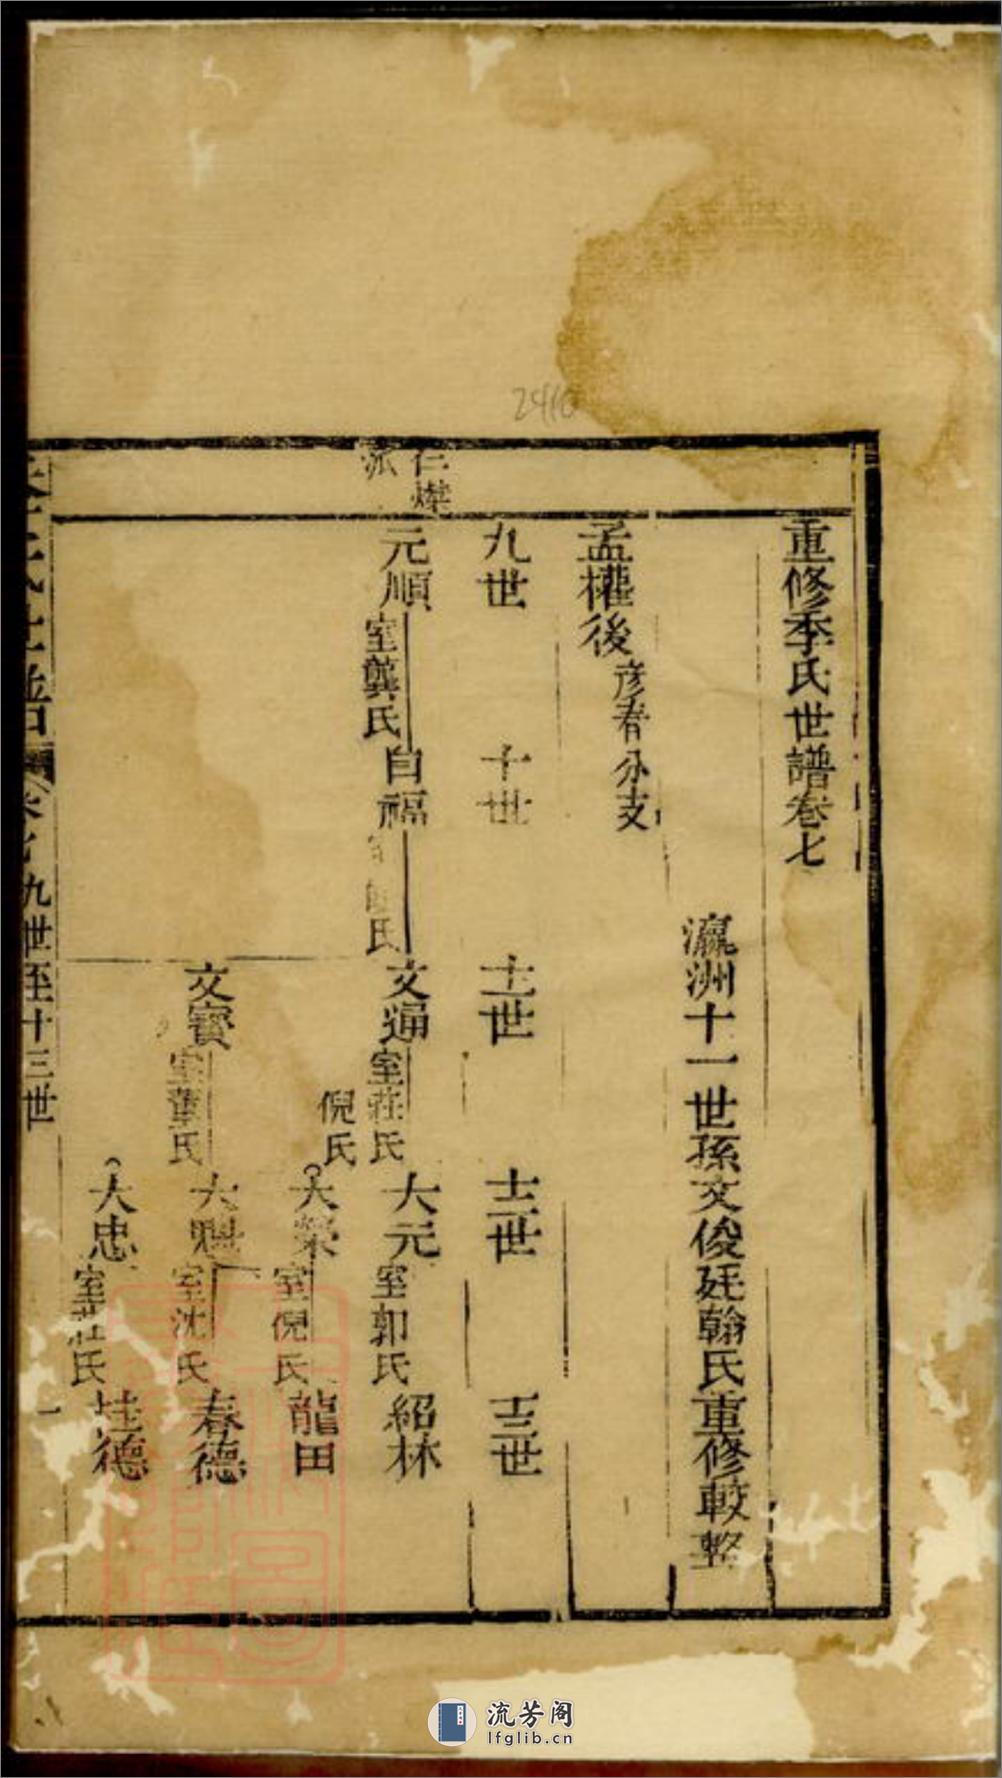 重修季氏世譜卷七
瀛洲十一世孫文俊廷翰氏重修較整
孟權後 彦春分支
九世 十世 十一世 十二世 十三世
仁燦
派
元順 室龔氏 自福 氏 文通 室莊氏 倪氏 大元 室郭氏 紹林
大榮 室倪氏 龍田
文寳 室葉氏 大魁 室沈氏 春德
大忠 室莊氏 桂德
季氏世譜 卷七 九世至十三世 一
2410
流芳阁
lfglib.cn